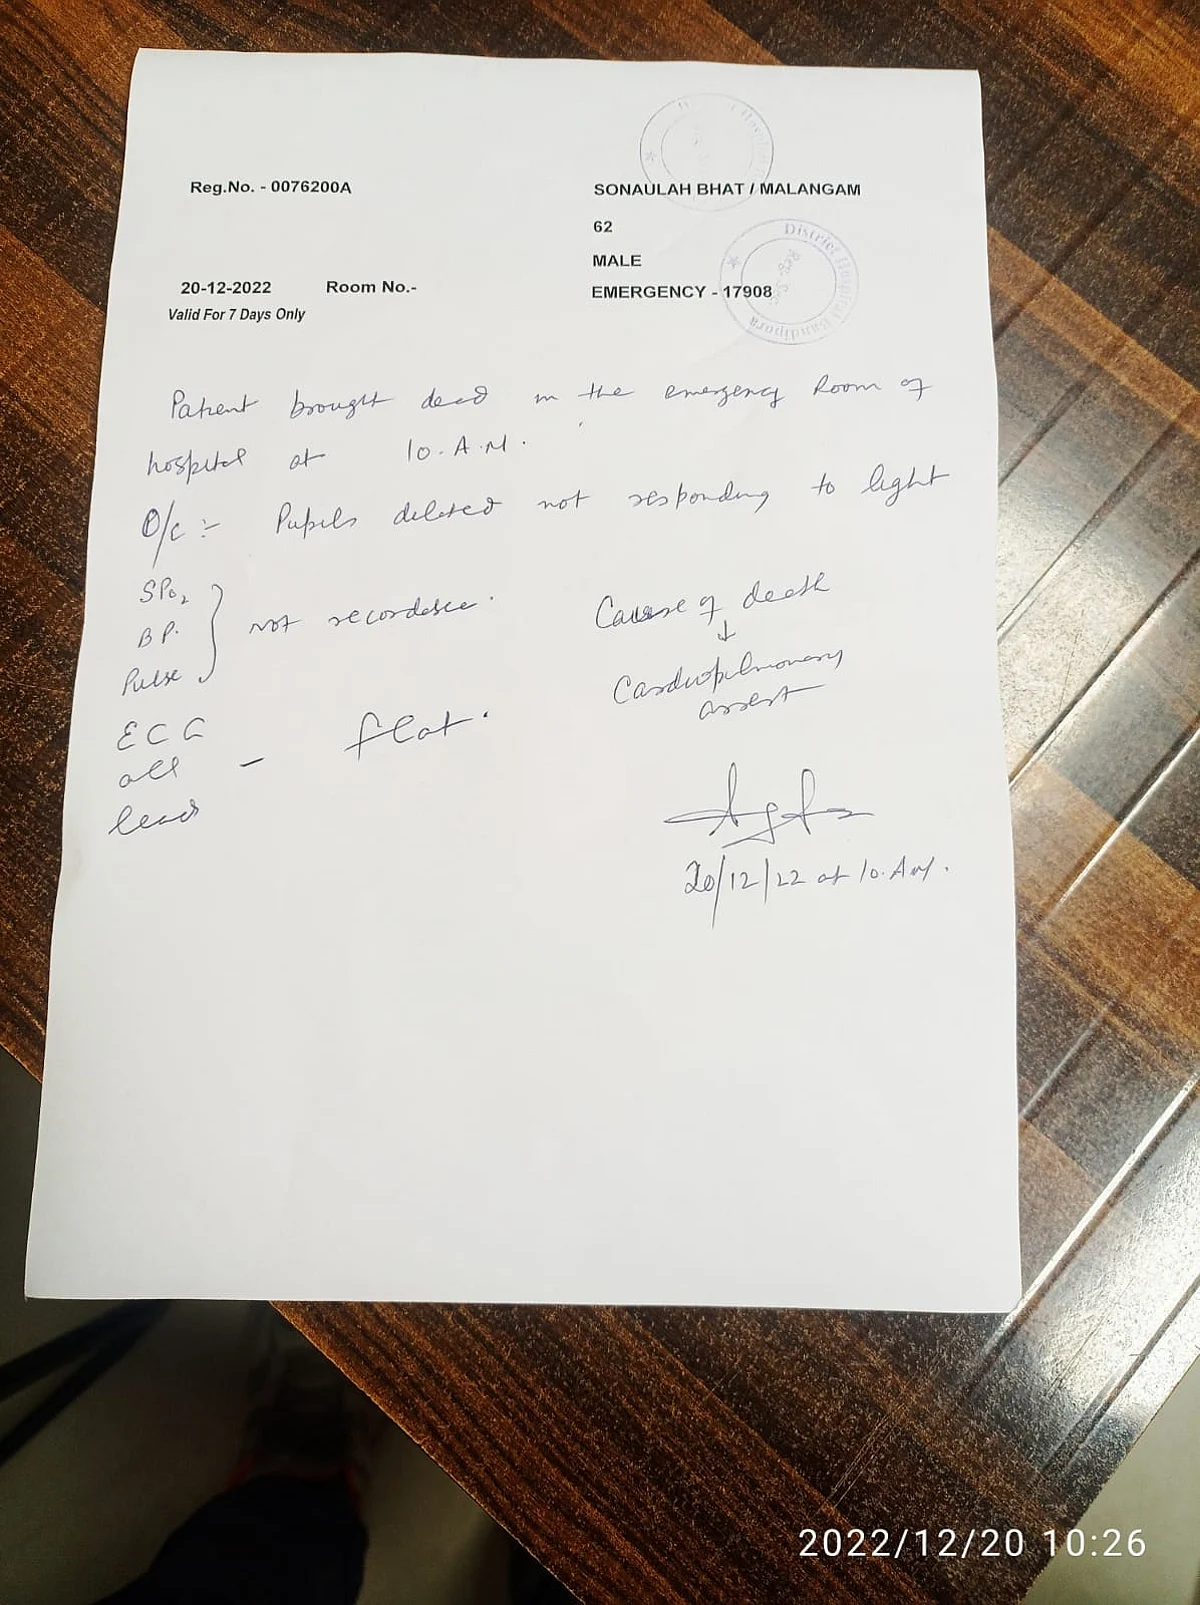 Reg.No. - 0076200A
SONAULAH BHAT / MALANGAM
62
MALE
20-12-2022 Room No.-
EMERGENCY - 17908
Valid For 7 Days Only
District Hospital Bandipora
Patient brought dead in the emergency Room of
hospital at 10. A.M.
Pupils dilated not responding to light
SPO2
BP.
Pulse
not
Cause of death
↓
Cardiopulmonary
arrest
ECG
all - flat.
lead
20/12/22 at 10. AM.
2022/12/20 10:26